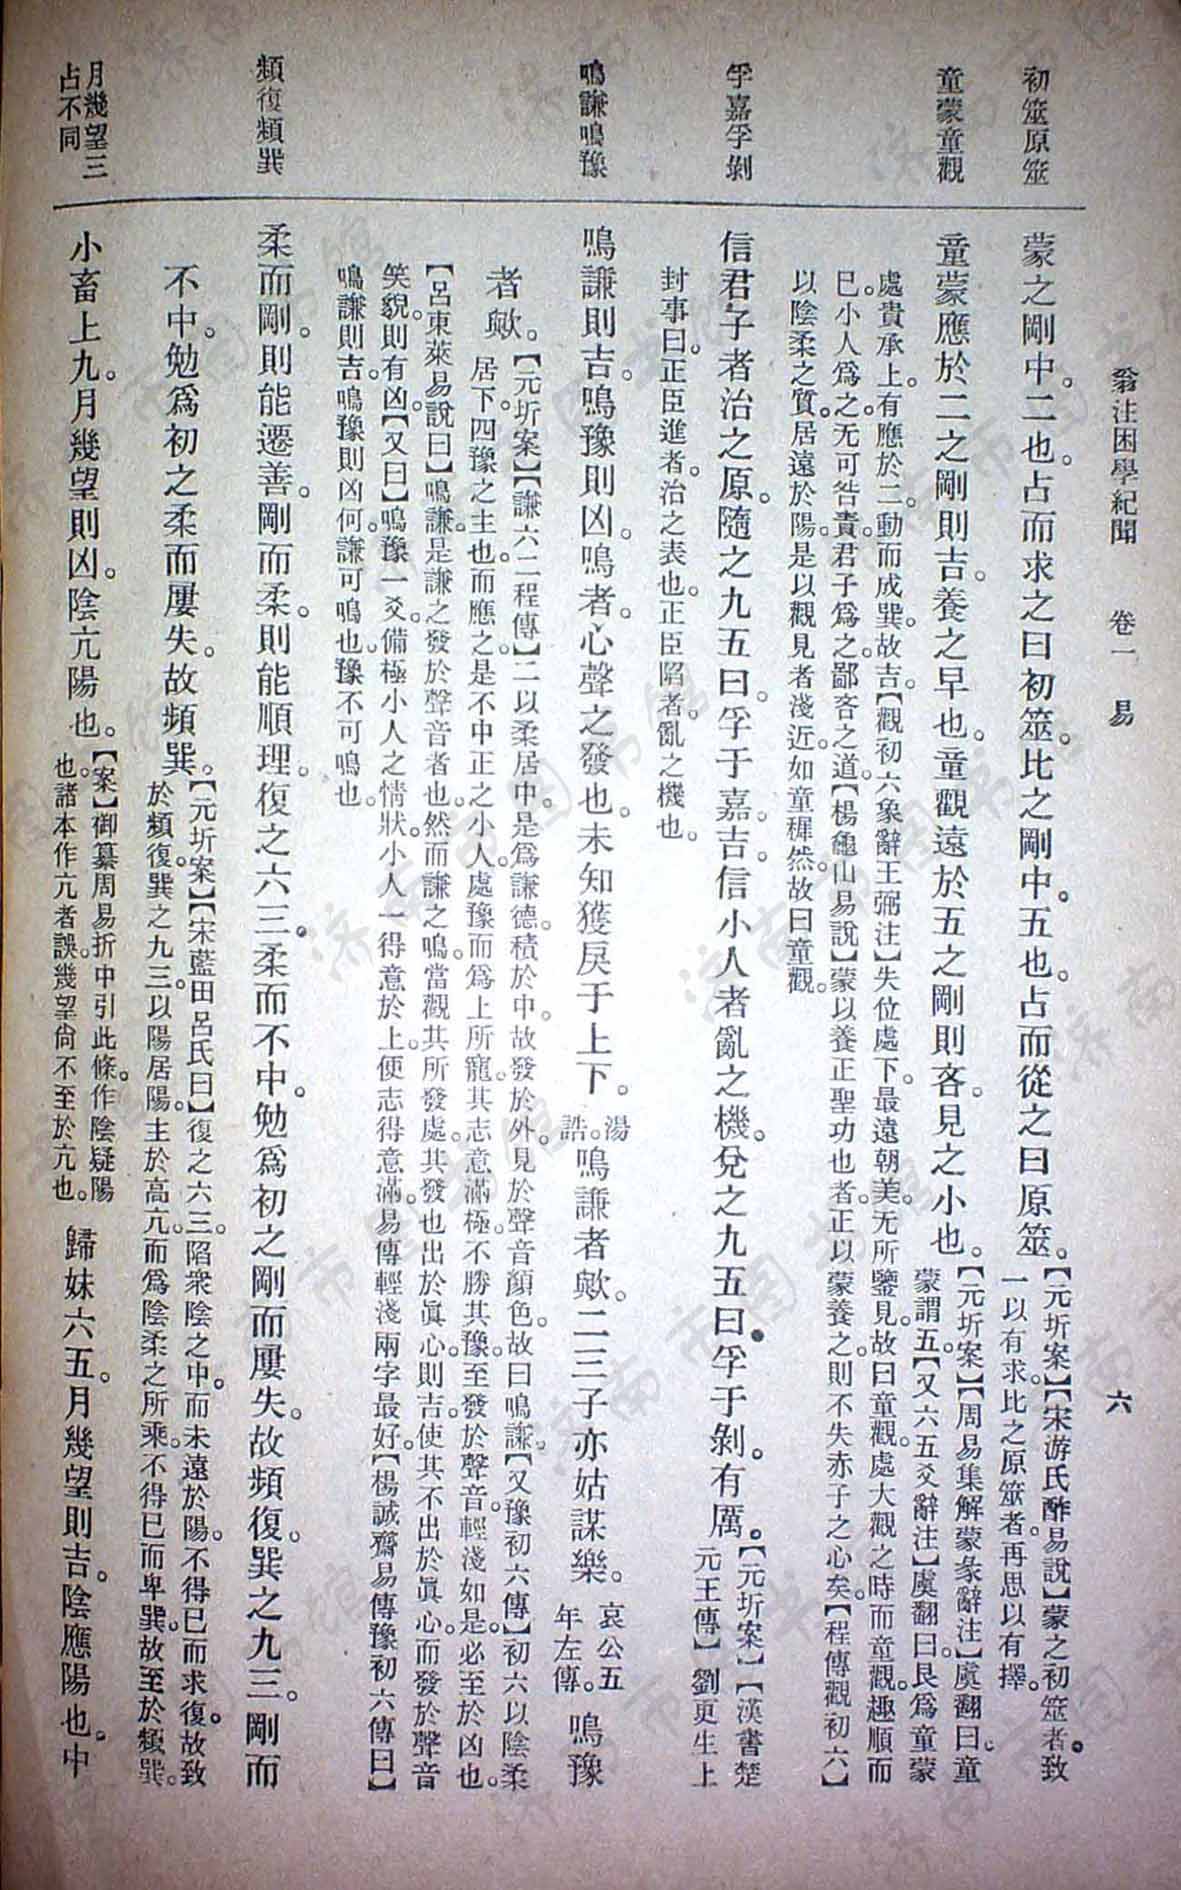 翁注困學紀聞 卷一 易 六
初筮原筮
童蒙童觀
孚嘉孚剝
鳴謙鳴豫
頻復頻巽
月幾望三
占不同
蒙之剛中。二也。占而求之曰初筮。比之剛中。五也。占而從之曰原筮。
【元圻案】【宋游氏酢易說】蒙之初筮者。致
一以有求。比之原筮者。再思以有擇。
童蒙應於二之剛則吉。養之早也。童觀遠於五之剛則吝。見之小也。
【元圻案】【周易集解蒙彖辭注】虞翻曰。童
蒙謂五。【又六五爻辭注】虞翻曰。艮爲童蒙
處貴承上。有應於二。動而成巽。故吉。【觀初六象辭王弼注】失位處下。最遠朝美。无所鑒見。故曰童觀。處大觀之時而童觀。趣順而
已。小人爲之。无可咎責。君子爲之。鄙吝之道。【楊龜山易說】蒙以養正聖功也者。正以蒙養之。則不失赤子之心矣。【程傳觀初六】
以陰柔之質。居遠於陽。是以觀見者淺近。如童穉然。故曰童觀。
信君子者治之原。隨之九五曰。孚于嘉。吉。信小人者亂之機。兌之九五曰。孚于剝。有厲。
【元圻案】【漢書楚
元王傳】劉更生上
封事曰。正臣進者。治之表也。正臣陷者。亂之機也。
鳴謙則吉。鳴豫則凶。鳴者。心聲之發也。未知獲戾于上下。
湯
誥。
鳴謙者歟。二三子亦姑謀樂。
哀公五
年左傳。
鳴豫
者歟。
【元圻案】【謙六二程傳】二以柔居中。是爲謙德。積於中。故發於外。見於聲音顏色。故曰鳴謙。【又豫初六傳】初六以陰柔
居下。四豫之主也。而應之。是不中正之小人。處豫而爲上所寵。其志意滿極。不勝其豫。至發於聲音。輕淺如是。必至於凶也。
【呂東萊易說曰】鳴謙。是謙之發於聲音者也。然而謙之鳴。當觀其所發處。其發也出於眞心。則吉。使其不出於眞心。而發於聲音
笑貌。則有凶。【又曰】鳴豫一爻。備極小人之情狀。小人一得意於上。便志得意滿。易傳輕淺兩字最好。【楊誠齋易傳豫初六傳曰】
鳴謙則吉。鳴豫則凶。何。謙可鳴也。豫不可鳴也。
柔而剛。則能遷善。剛而柔。則能順理。復之六三。柔而不中。勉爲初之剛而屢失。故頻復。巽之九三。剛而
不中。勉爲初之柔而屢失。故頻巽。
【元圻案】【宋藍田呂氏曰】復之六三。陷衆陰之中。而未遠於陽。不得已而求復。故致
於頻復。巽之九三。以陽居陽。主於高亢。而爲陰柔之所乘。不得已而卑巽。故至於頻巽。
小畜上九。月幾望則凶。陰亢陽也。
【案】御纂周易折中引此條。作陰疑陽
也。諸本作亢者誤。幾望尙不至於亢也。
歸妹六五。月幾望則吉。陰應陽也。中